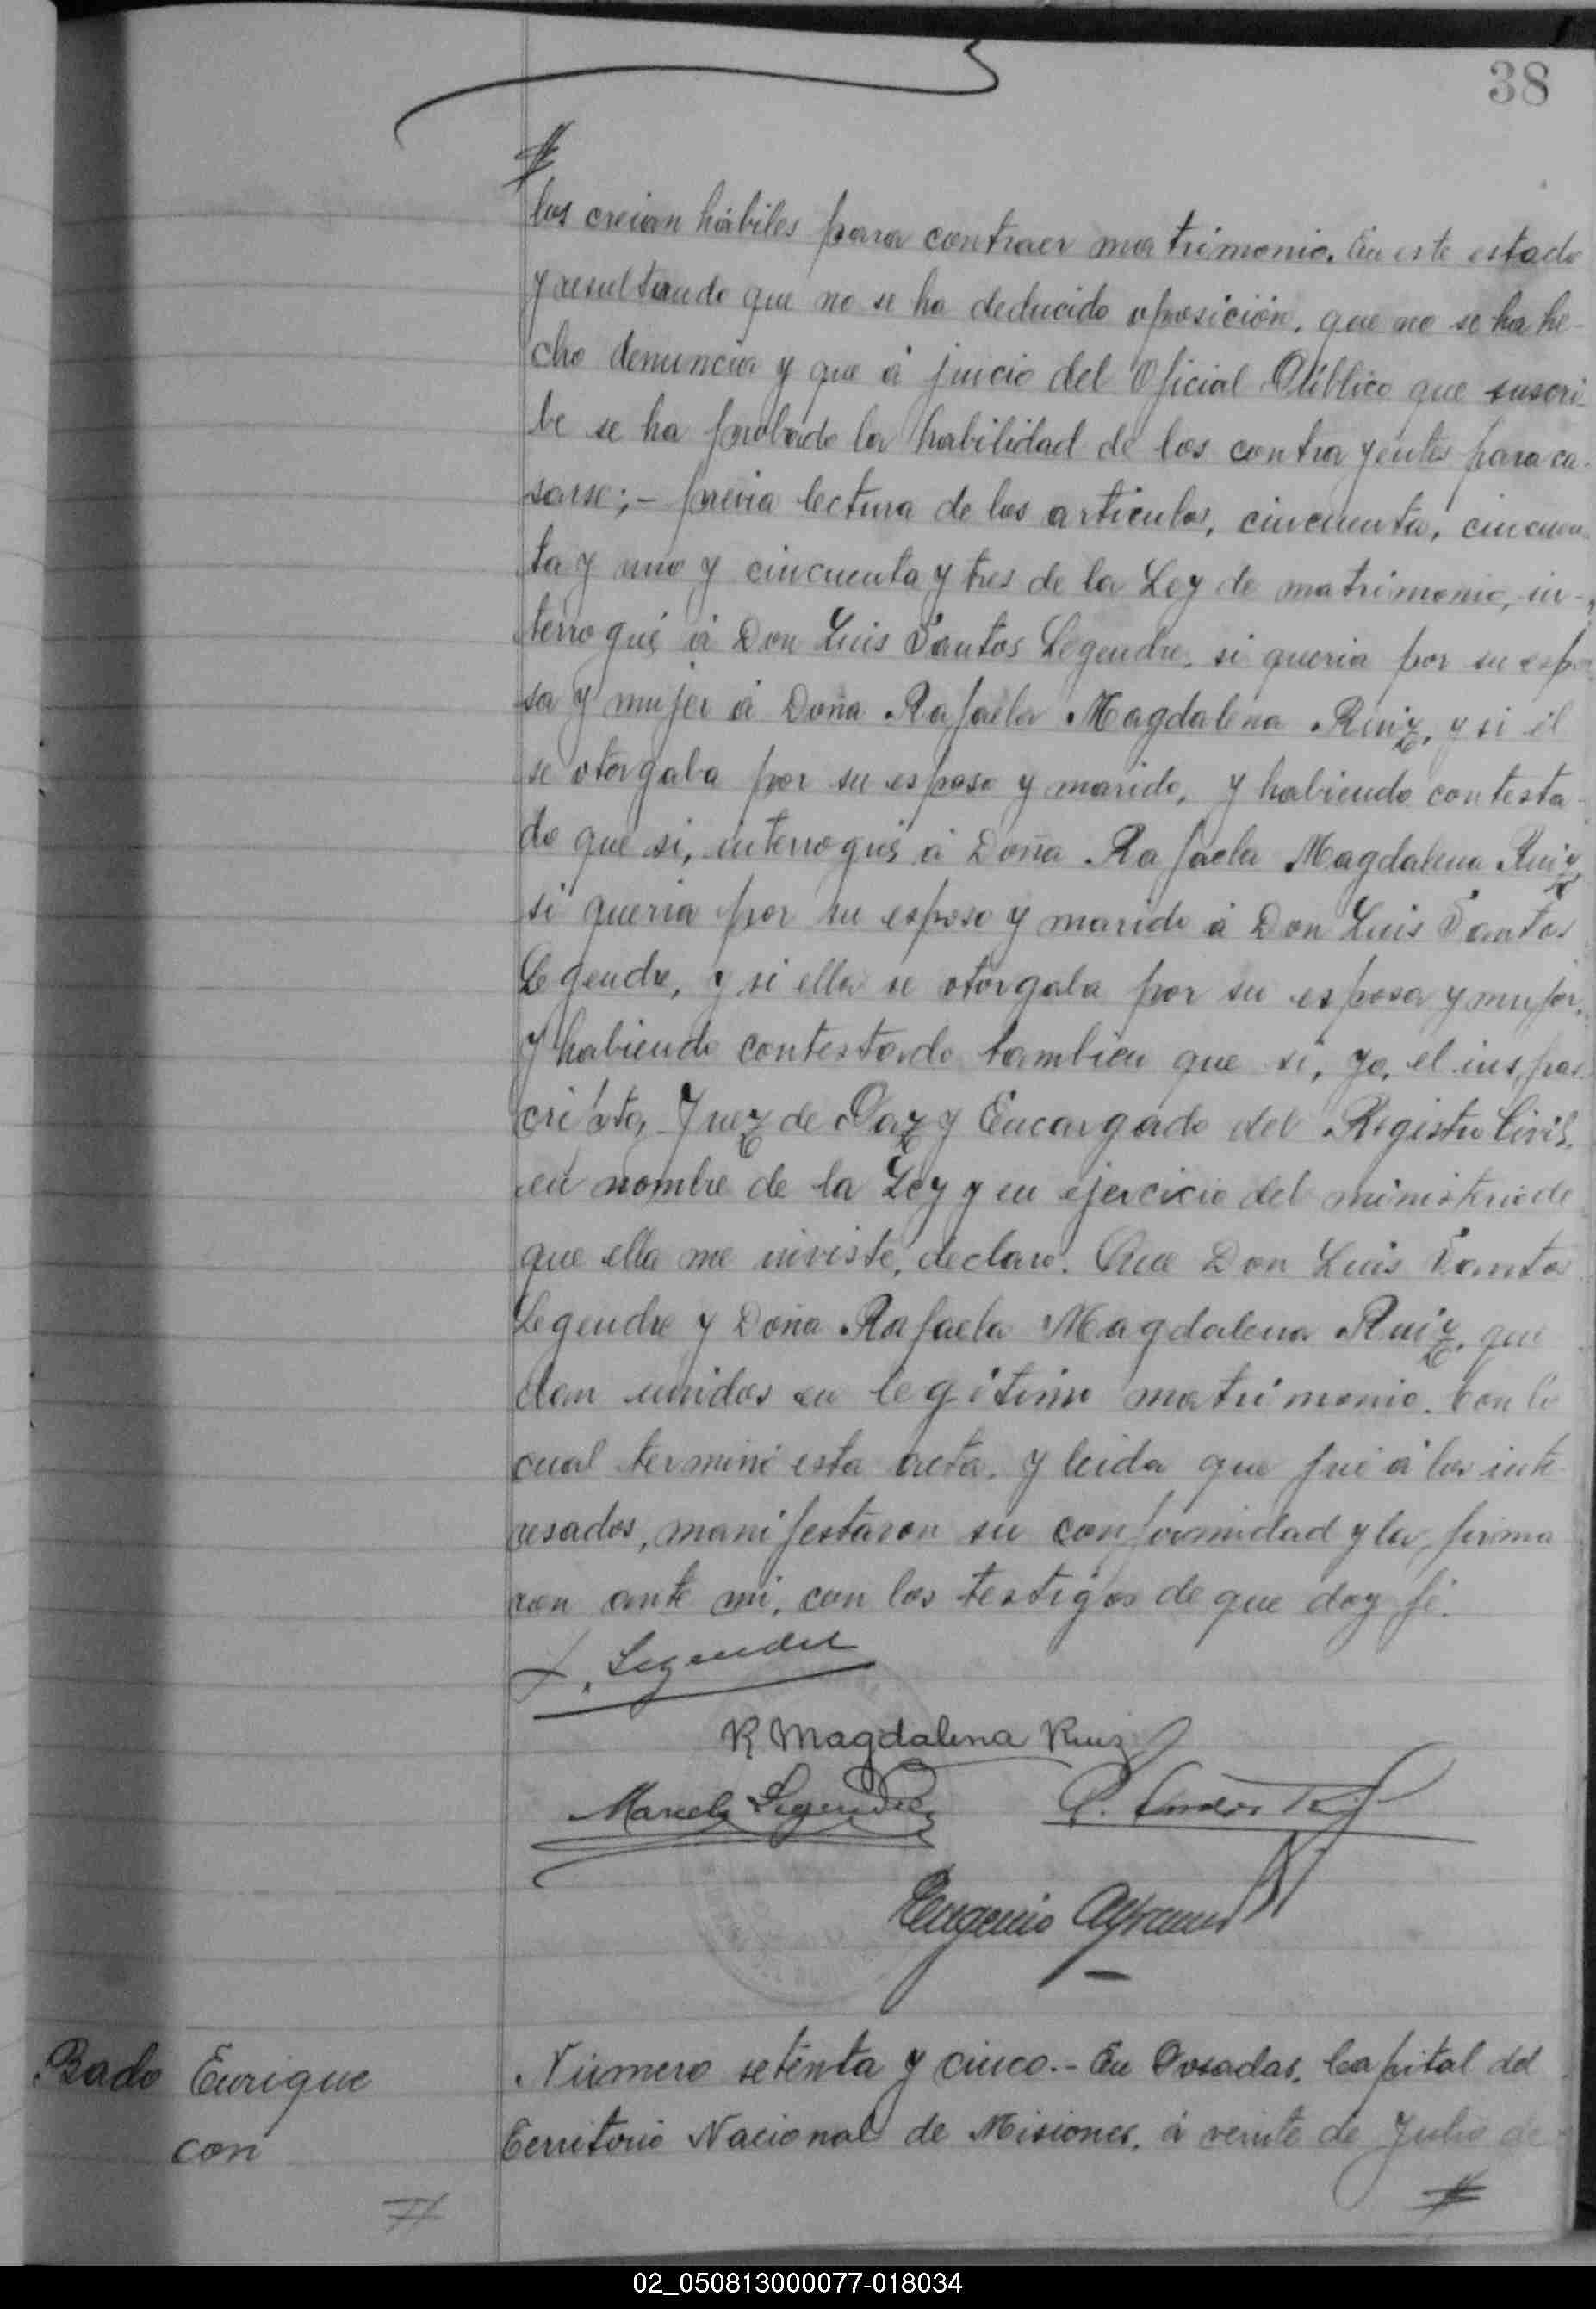 38
los creian hábiles para contraer matrimonio. En este estado
y resultando que no se ha deducido oposición, que no se ha he-
cho denuncia y que á juicio del Oficial Público que suscri-
be se ha probado la habilidad de los contrayentes para ca-
sarse;- previa lectura de los articulos, cincuenta, cincuen-
ta y uno y cincuenta y tres de la Ley de matrimonio, in-
terrogué á Don Luis Santos Legendre, si queria por su espo
sa y mujer á Doña Rafaela Magdalena Ruiz, y si él
se otorgaba por su esposo y marido, y habiendo contesta-
do que si, interrogué á Doña Rafaela Magdalena Ruiz
si queria por su esposo y marido á Don Luis Santos
Legendre, y si ella se otorgaba por su esposa y mujer,
y habiendo contestado tambien que si, yo, el
Juez de Paz y Encargado del Registro Civil,
en nombre de la Ley y en ejercicio del ministerio de
que ella me inviste, declaro: Que Don Luis Santos
Legendre y Doña Rafaela Magdalena Ruiz, que
dan unidos en legítimo matrimonio. Con lo
cual terminé esta acta, y leida que fué á los inte-
resados, manifestaron su conformidad y la firma-
ron ante mi, con los testigos de que doy fé.
L. Legendre
R Magdalena Ruiz
Marcelo Legendre
Eugenio
Bado Enrique
con
Número setenta y cinco.- En Posadas, Capital del
Territorio Nacional de Misiones, á veinte de Julio de
02_050813000077-018034